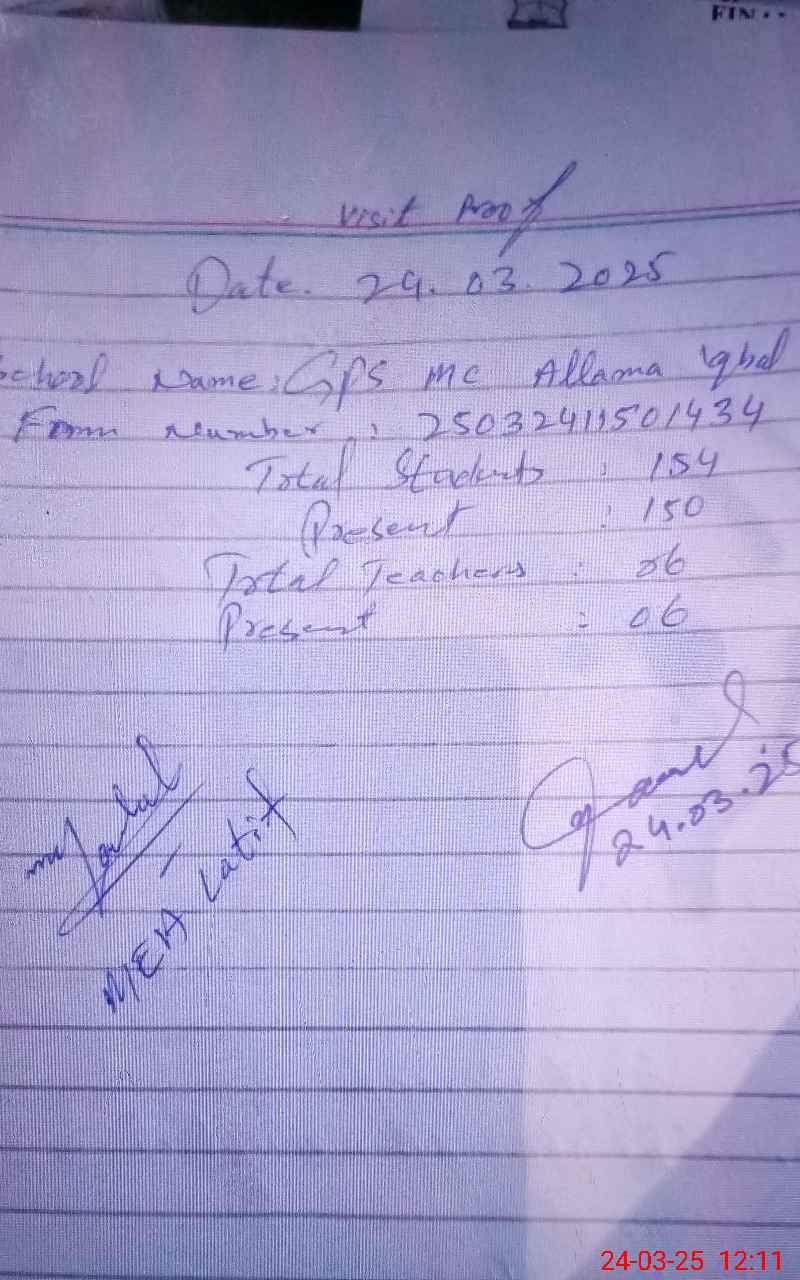 FIN
Visit Proof
Date. 24.03.2025
School Name: GPS MC Allama Iqbal
Form Number : 25032411501434
Total Students : 154
Present : 150
Total Teachers : 06
Present : 06
24.03.25
MEA Latif
24-03-25 12:11